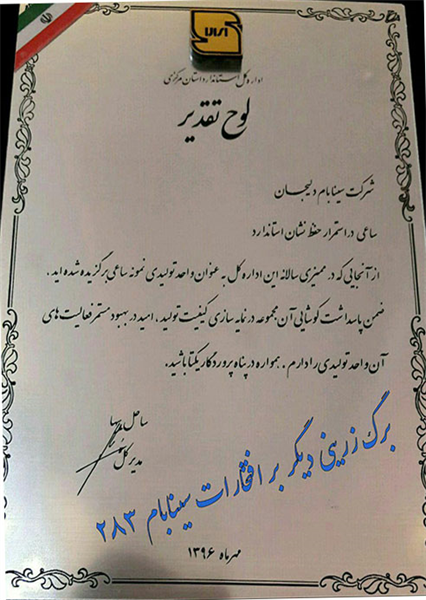 اداره کل استاندارد استان مرکزی
لوح تقدیر
شرکت سینابام دلیجان
ساعی در استمرار حفظ نشان استاندارد
از آنجایی که در ممیزی سالانه این اداره کل به عنوان واحد تولیدی نمونه ساعی برگزیده شده اید ،
ضمن پاسداشت کوشایی آن مجموعه در نمایه سازی کیفیت تولید ، امید در بهبود مستمر فعالیت های
آن واحد تولیدی را دارم . همواره در پناه پروردگار یکتا باشید.
مدیر کل
برگ زرینی دیگر بر افتخارات سینابام ۲۸۳
مهر ماه ۱۳۹۶